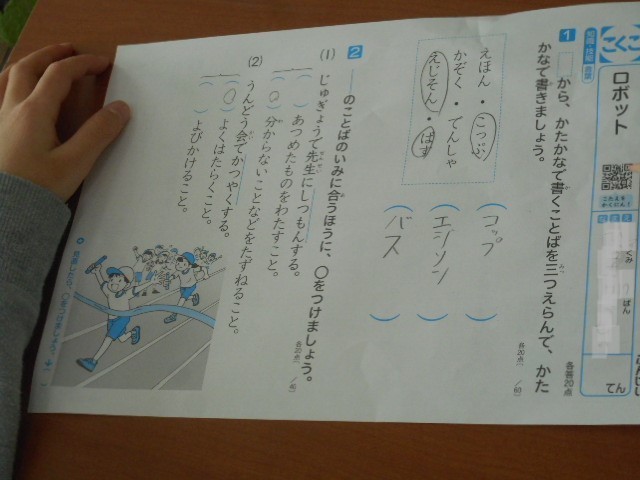 こくご
ロボット
こたえを
かくにん!
くみ
ばん
てん
1 □から、かたかなで書くことばを三つえらんで、かた
かなで書きましょう。
各答20点
/60
えほん・こっぷ
かぞく・てんしゃ
えじそん・ばす
(コップ)
(エジソン)
(バス)
2 ――のことばのいみに合うほうに、○をつけましょう。
各20点
/40
(1) じゅぎょうで先生にしつもんする。
( )あつめたものをわたすこと。
(○)分からないことなどをたずねること。
(2) うんどう会でかつやくする。
(○)よくはたらくこと。
( )よびかけること。
見直したら、○をつけましょう。